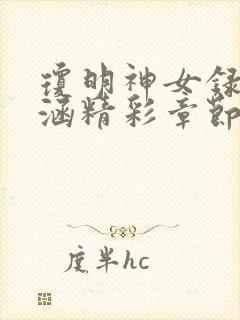 瓊明神女録
涵精彩章節
度半hc